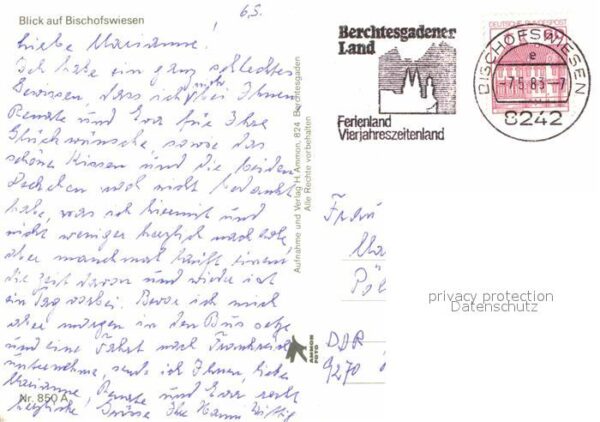 Blick auf Bischofswiesen
6.5.
Liebe Marianne!
Ich habe ein ganz schlechtes
Gewissen, dass ich mich bei Ihnen
Renate und Eva für Ihre
Glückwünsche, sowie das
schöne Kissen und die beiden
Deckchen noch nicht bedankt
habe, was ich hiermit und
nicht weniger herzlich nachhole,
aber manchmal läuft einem
die Zeit davon und wieder ist
ein Tag vorbei. Bevor ich mich
aber morgen in den Bus setze
und eine Fahrt nach Frankreich
unternehme, sende ich Ihnen, liebe
Marianne, Renate und Eva recht
herzliche Grüsse Ihr Hanni
Nr. 850 A
Aufnahme und Verlag H. Ammon, 824 Berchtesgaden
Alle Rechte vorbehalten
AMMON
FOTO
Berchtesgadener
Land
Ferienland
Vierjahreszeitenland
DEUTSCHE BUNDESPOST
BISCHOFSWIESEN
e
-7.5.83-7
8242
Frau
Ma
Pö
DDR
9270
privacy protection
Datenschutz